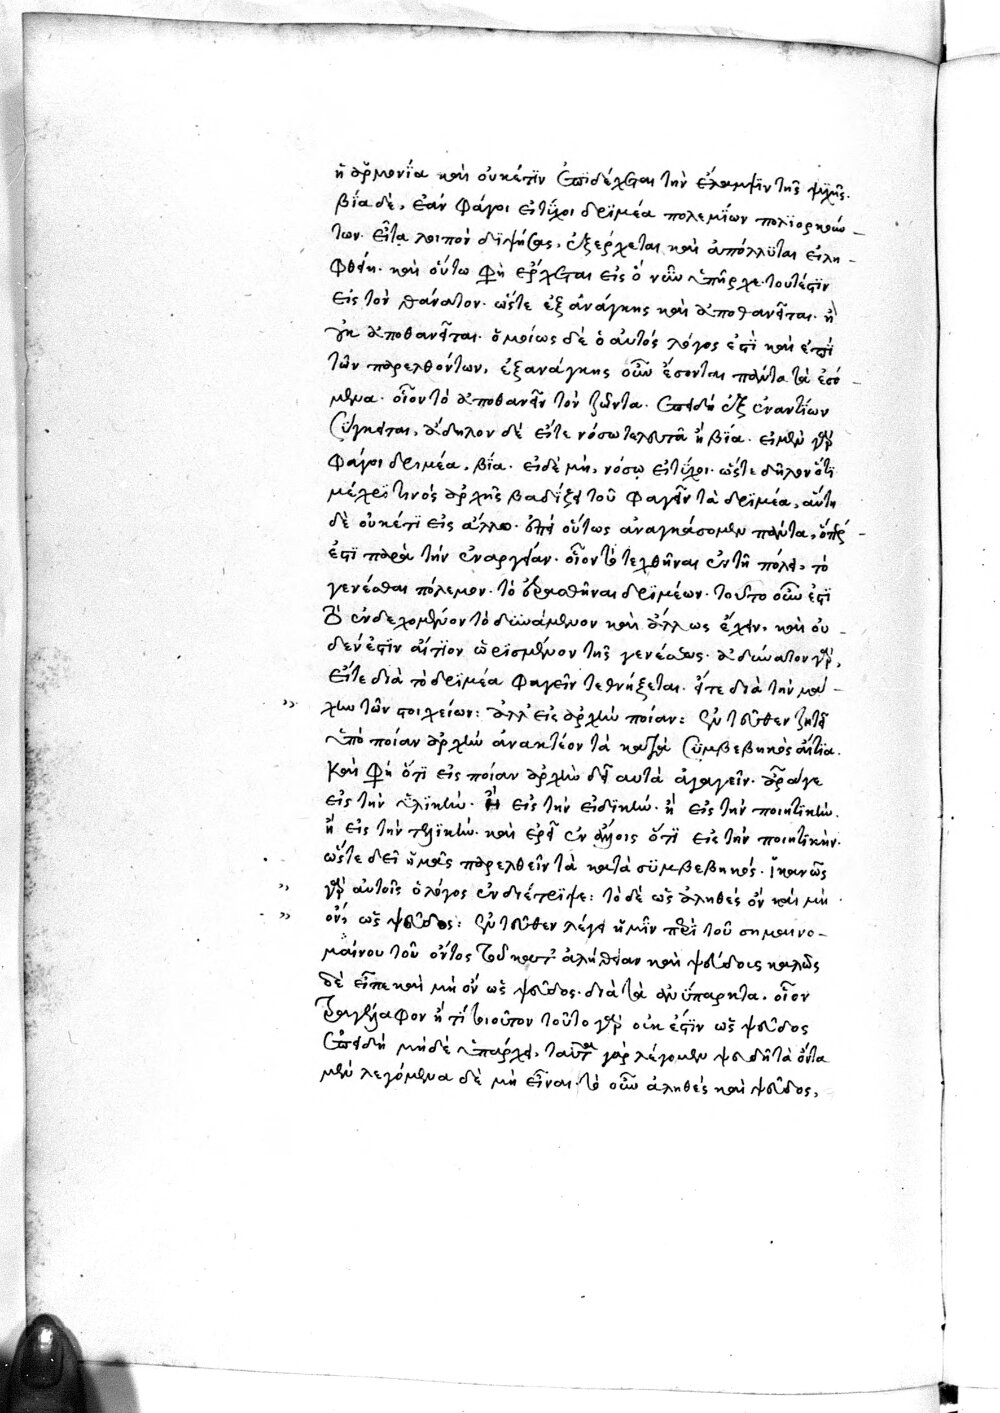 ἡ ἁρμονία καὶ οὐκέτιν ἐπιδέχεται τὴν ἔλαμψιν τῆς ψυχῆς.
βία δὲ, ἐὰν φάγοι εἰ τύχοι δριμέα πολεμίων πολιορκούν
των. εἶτα λοιπὸν διψήσας, ἐξέρχεται καὶ ἀπόλλυται ει λη
φθείη. καὶ οὕτω φὴ ἔρχεται εἰς ὁ νῦν ὑπῆρχε. τουτέστιν
εἰς τὸν θάνατον. ὥστε ἐξ ἀνάγκης καὶ ἀποθανεῖται. ἢ
οὐκ ἀποθανεῖται. ὁμοίως δὲ ὁ αὐτὸς λόγος ἐστὶ καὶ ἐπὶ
τῶν παρελθόντων, ἐξανάγκης οὖν ἔσονται πάντα τὰ ἐσό
μενα. οἷον τὸ ἀποθανεῖν τὸν ζῶντα. ἐπειδὴ ἐξ ἐναντίων
σύγκειται, ἄδηλον δὲ εἴτε νόσω τελευτᾶ ἢ βία. εἰ μὲν γὰρ
φάγοι δριμέα, βία. εἰ δὲ μὴ, νόσῳ εἰ τύχοι. ὥστε δῆλον ὅτι
μέχρι τινὸς ἀρχῆς βαδίζει τοῦ φαγεῖν τὰ δριμέα, αὕτη
δὲ οὐκέτι εἰς ἄλλο. ἐπεὶ οὕτως ἀναγκάσομεν πάντα, ὅπερ
ἐστὶ παρὰ τὴν ἐνάργειαν. οἷον τὸ τεχθῆναι ἐν τῆ πόλει, τὸ
γενέσθαι πόλεμον. τὸ δριμέων. τοῦτο οὖν ἐστὶ
τὸ ἐνδεχομένον τὸ δυνάμενον καὶ ἄλλως ἔχειν, καὶ οὐ
δέν ἐστιν αἴτιον ὡρισμένον τῆς γενέσεως. ἀδύνατον γὰρ,
εἴτε διὰ τὸ δριμέα φαγεῖν τεθνήξεται. εἴτε διὰ τὴν μά
χην τῶν στοιχείων: ἀλλ' εἰς ἀρχὴν ποίαν: ἐντεῦθεν ζητεῖ
ὑπὸ ποίαν ἀρχὴν ἀνακτέον τὰ κατὰ συμβεβηκὸς αἴτια.
καὶ φὴ ὅτι εἰς ποίαν ἀρχὴν δεῖ αὐτὰ ἀγαγεῖν. ἆρά γε
εἰς τὴν ὑλικὴν. ἢ εἰς τὴν εἰδικὴν. ἢ εἰς τὴν ποιητικὴν.
ἢ εἰς τὴν τελικὴν. καὶ ἐρεῖ ἐν ἄλλοις ὅτι εἰς τὴν ποιητικήν.
ὥστε δεῖ ἡμᾶς παρελθεῖν τὰ κατὰ συμβεβηκός. ἱκανῶς
γὰρ αὐτοῖς ὁ λόγος ἐνδιέτριψε: τὸ δὲ ὡς ἀληθὲς ὂν καὶ μὴ
ὂν, ὡς ψεῦδος: ἐντεῦθεν λέγει ἡμῖν περὶ τοῦ σημαινο
μαίνου τοῦ ὄντος τοῦ κατ' ἀλήθειαν καὶ ψεύδους καλῶς
δὲ εἶπε καὶ μὴ ὂν ὡς ψεῦδος. διὰ τὰ ἀνύπαρκτα. οἷον
τραγελαφον ἤ τι τοιοῦτον τοῦτο γὰρ οὐκ ἔστιν ὡς ψεῦδος
ἐπειδὴ μηδὲ ὑπάρχει, ταῦτα γὰρ λέγομεν ψευδῆ τὰ ὄντα
μὲν λεγόμενα δὲ μὴ εἶναι. τὸ οὖν ἀληθὲς καὶ ψεῦδος,